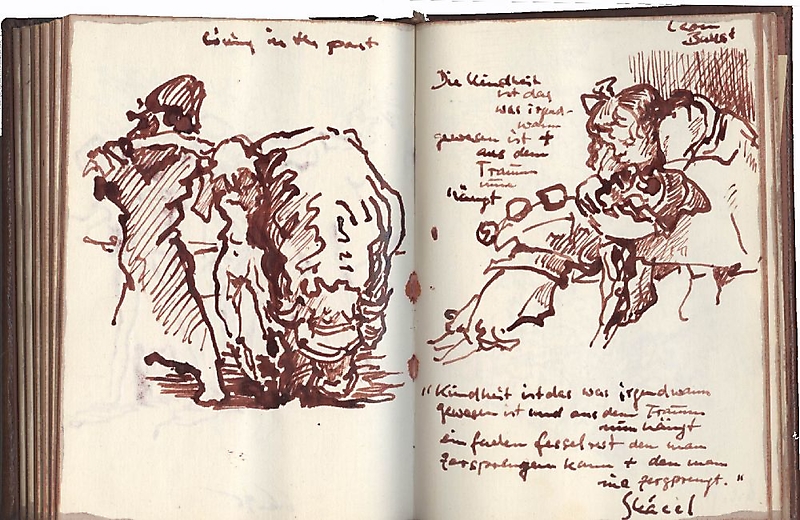 living in the past
Leon
Die Kindheit
ist das
was irgend-
wann
gewesen ist +
aus dem
Traum
hängt
"Kindheit ist das was irgendwann
gewesen ist und aus dem Traum
nun hängt
ein faden fesselrest den man
zersprengen kann + den man
nie zersprengt."
Skácel